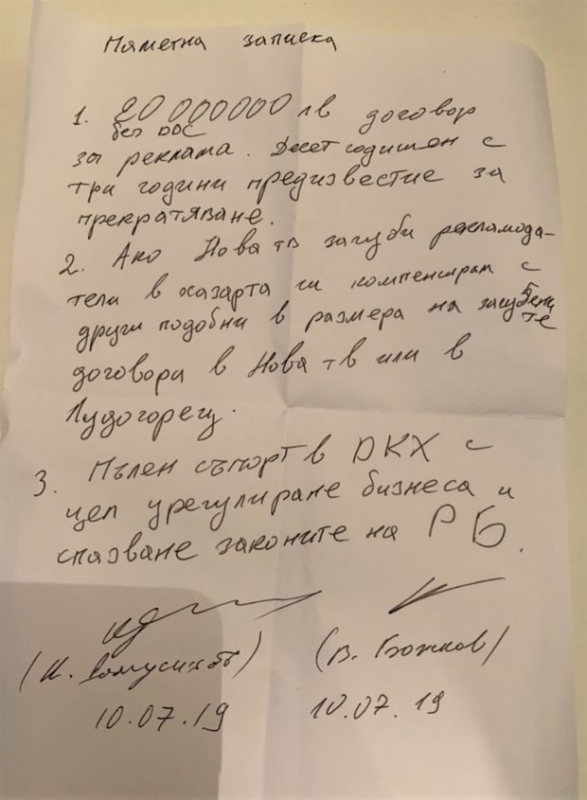 Паметна записка
1. 20 000000 лв договор
без ДДС
за реклама. Десетгодишен с
три години предизвестие за
прекратяване.
2. Ако Нова тв загуби рекламода-
тели в хазарта ги компенсирам с
други подобни в размера на загубени
те
договори в Нова тв или в
Лудогорец.
3. Пълен съпорт в ДКХ с
цел урегулиране бизнеса и
спазване законите на РБ.
(К. Домусчиев) (В. Божков)
10.07.19 10.07.19